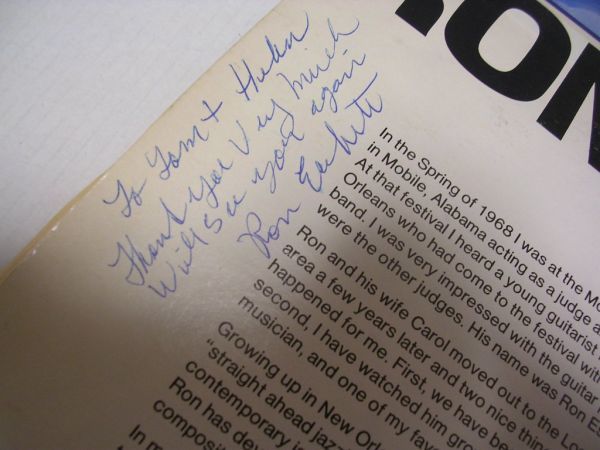 ION
To Tom + Helen
Thank you Very Much
Will See you again
Ron Eschete
In the Spring of 1968 I was at the Mo
in Mobile, Alabama acting as a judge a
At that festival I heard a young guitarist
Orleans who had come to the festival with
band. I was very impressed with the guitar
were the other judges. His name was Ron Es
Ron and his wife Carol moved out to the Lo
area a few years later and two nice thing
happened for me. First, we have bee
second, I have watched him gro
musician, and one of my favo
Growing up in New Orl
"straight ahead jazz
contemporary is
Ron has dev
compositi
In m